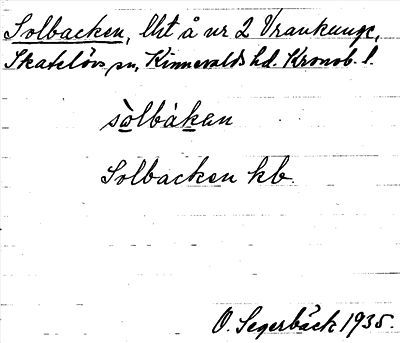 Solbacken, lht å nr 2 Vrankunge,
Skatelövs sn, Kinnevalds hd. Kronob. l.
sòlbákan
Solbacken kb.
O. Segerbäck 1935.